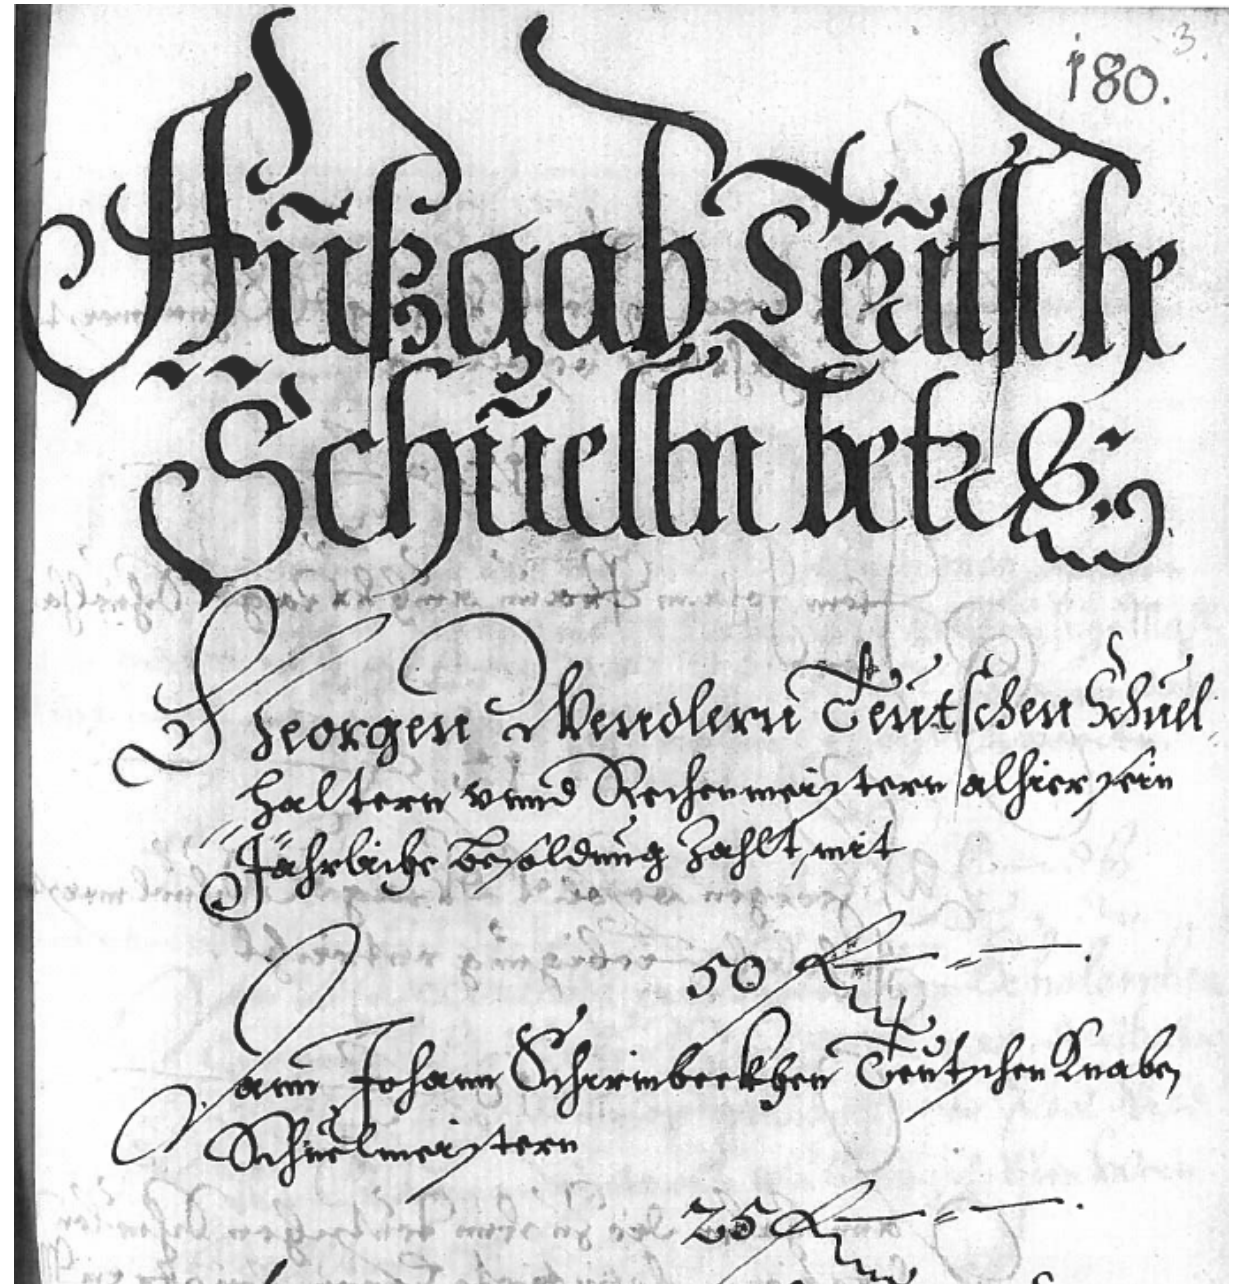 3.
180.
Außgab Teütsche
Schuelln betr.
Georgen Wendlern Teutschen Schuel
haltern vnnd Rechenmeistern alhier sein
Jährliche besoldung zahlt, mit
50 f — = — .
Dann Johann Schirmbeckhen Teutschen Knaben
Schuelmeistern
25 f — = — .